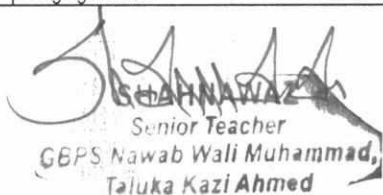 SHAHNAWAZ
Senior Teacher
GBPS Nawab Wali Muhammad,
Taluka Kazi Ahmed